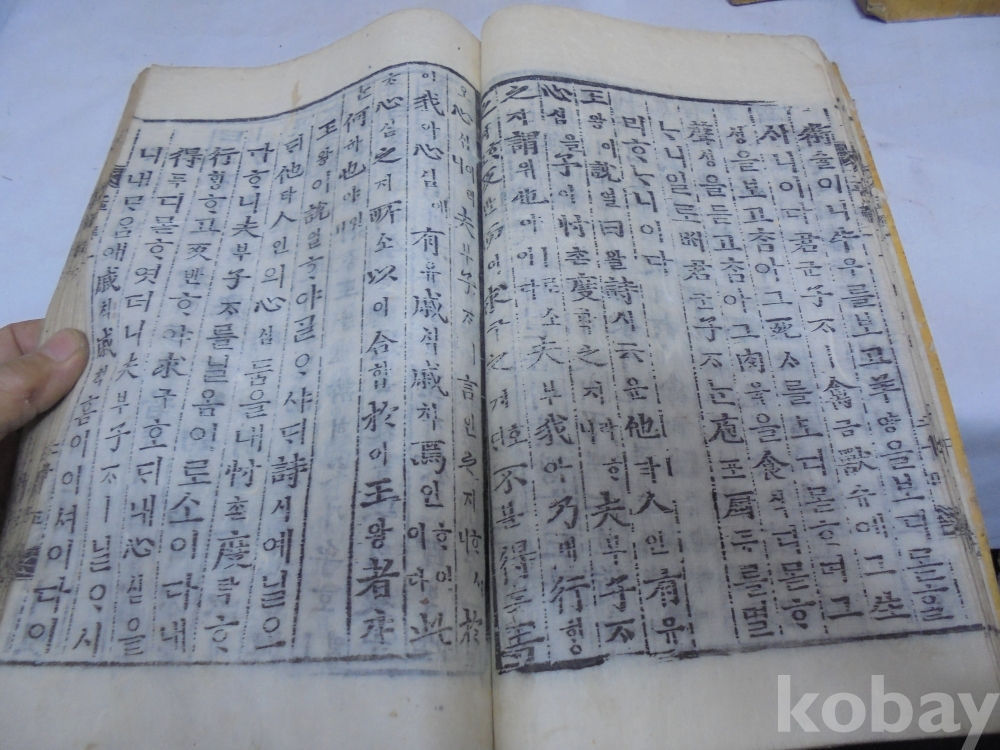 術슐이니牛우를보고羊양을보디몯ᄒᆞᆯ
시니이다君군子ᄌᆞㅣ禽금獸슈에그生
싱을보고ᄎᆞᆷ아그死ᄉᆞ를보디몯ᄒᆞ며그
聲셩을듣고ᄎᆞᆷ아그肉육을食식디몯ᄒᆞ
ᄂᆞ니일로ᄡᅥ君군子ᄌᆞᄂᆞᆫ庖포廚듀를멀
리ᄒᆞᄂᆞ니이다
王왕이說열曰왈詩시云운他타人인有유
心심을予여忖촌度탁之지라ᄒᆞ니夫부子ᄌᆞ
之지謂위也야ㅣ로소이다夫부我아乃내行ᄒᆡᆼ
之지反반而이求구之지호ᄃᆡ不블得득吾
오心심이夫부子ᄌᆞㅣ言언之지ᄒᆞ於
어我아心심애有유戚쳑戚쳑焉언ᄒᆞ이다此
ᄎᆞ心심之지所소以이合합於어王왕者쟈
ᄂᆞᆫ何하也야ㅣ잇고
王왕이說열ᄒᆞ야ᄀᆞᆯᄋᆞ샤ᄃᆡ詩시예닐오
ᄃᆡ他타人인의心심둠을내忖촌度탁ᄒᆞ
다ᄒᆞ니夫부子ᄌᆞ를닐옴이로소이다내
行ᄒᆡᆼᄒᆞ고反반ᄒᆞ야求구호ᄃᆡ내心심을
得득디몯ᄒᆞ엿더니夫부子ᄌᆞㅣ닐ᄋᆞ시
니내ᄆᆞᄋᆞᆷ애戚쳑戚쳑홈이이셔이다이
kobay